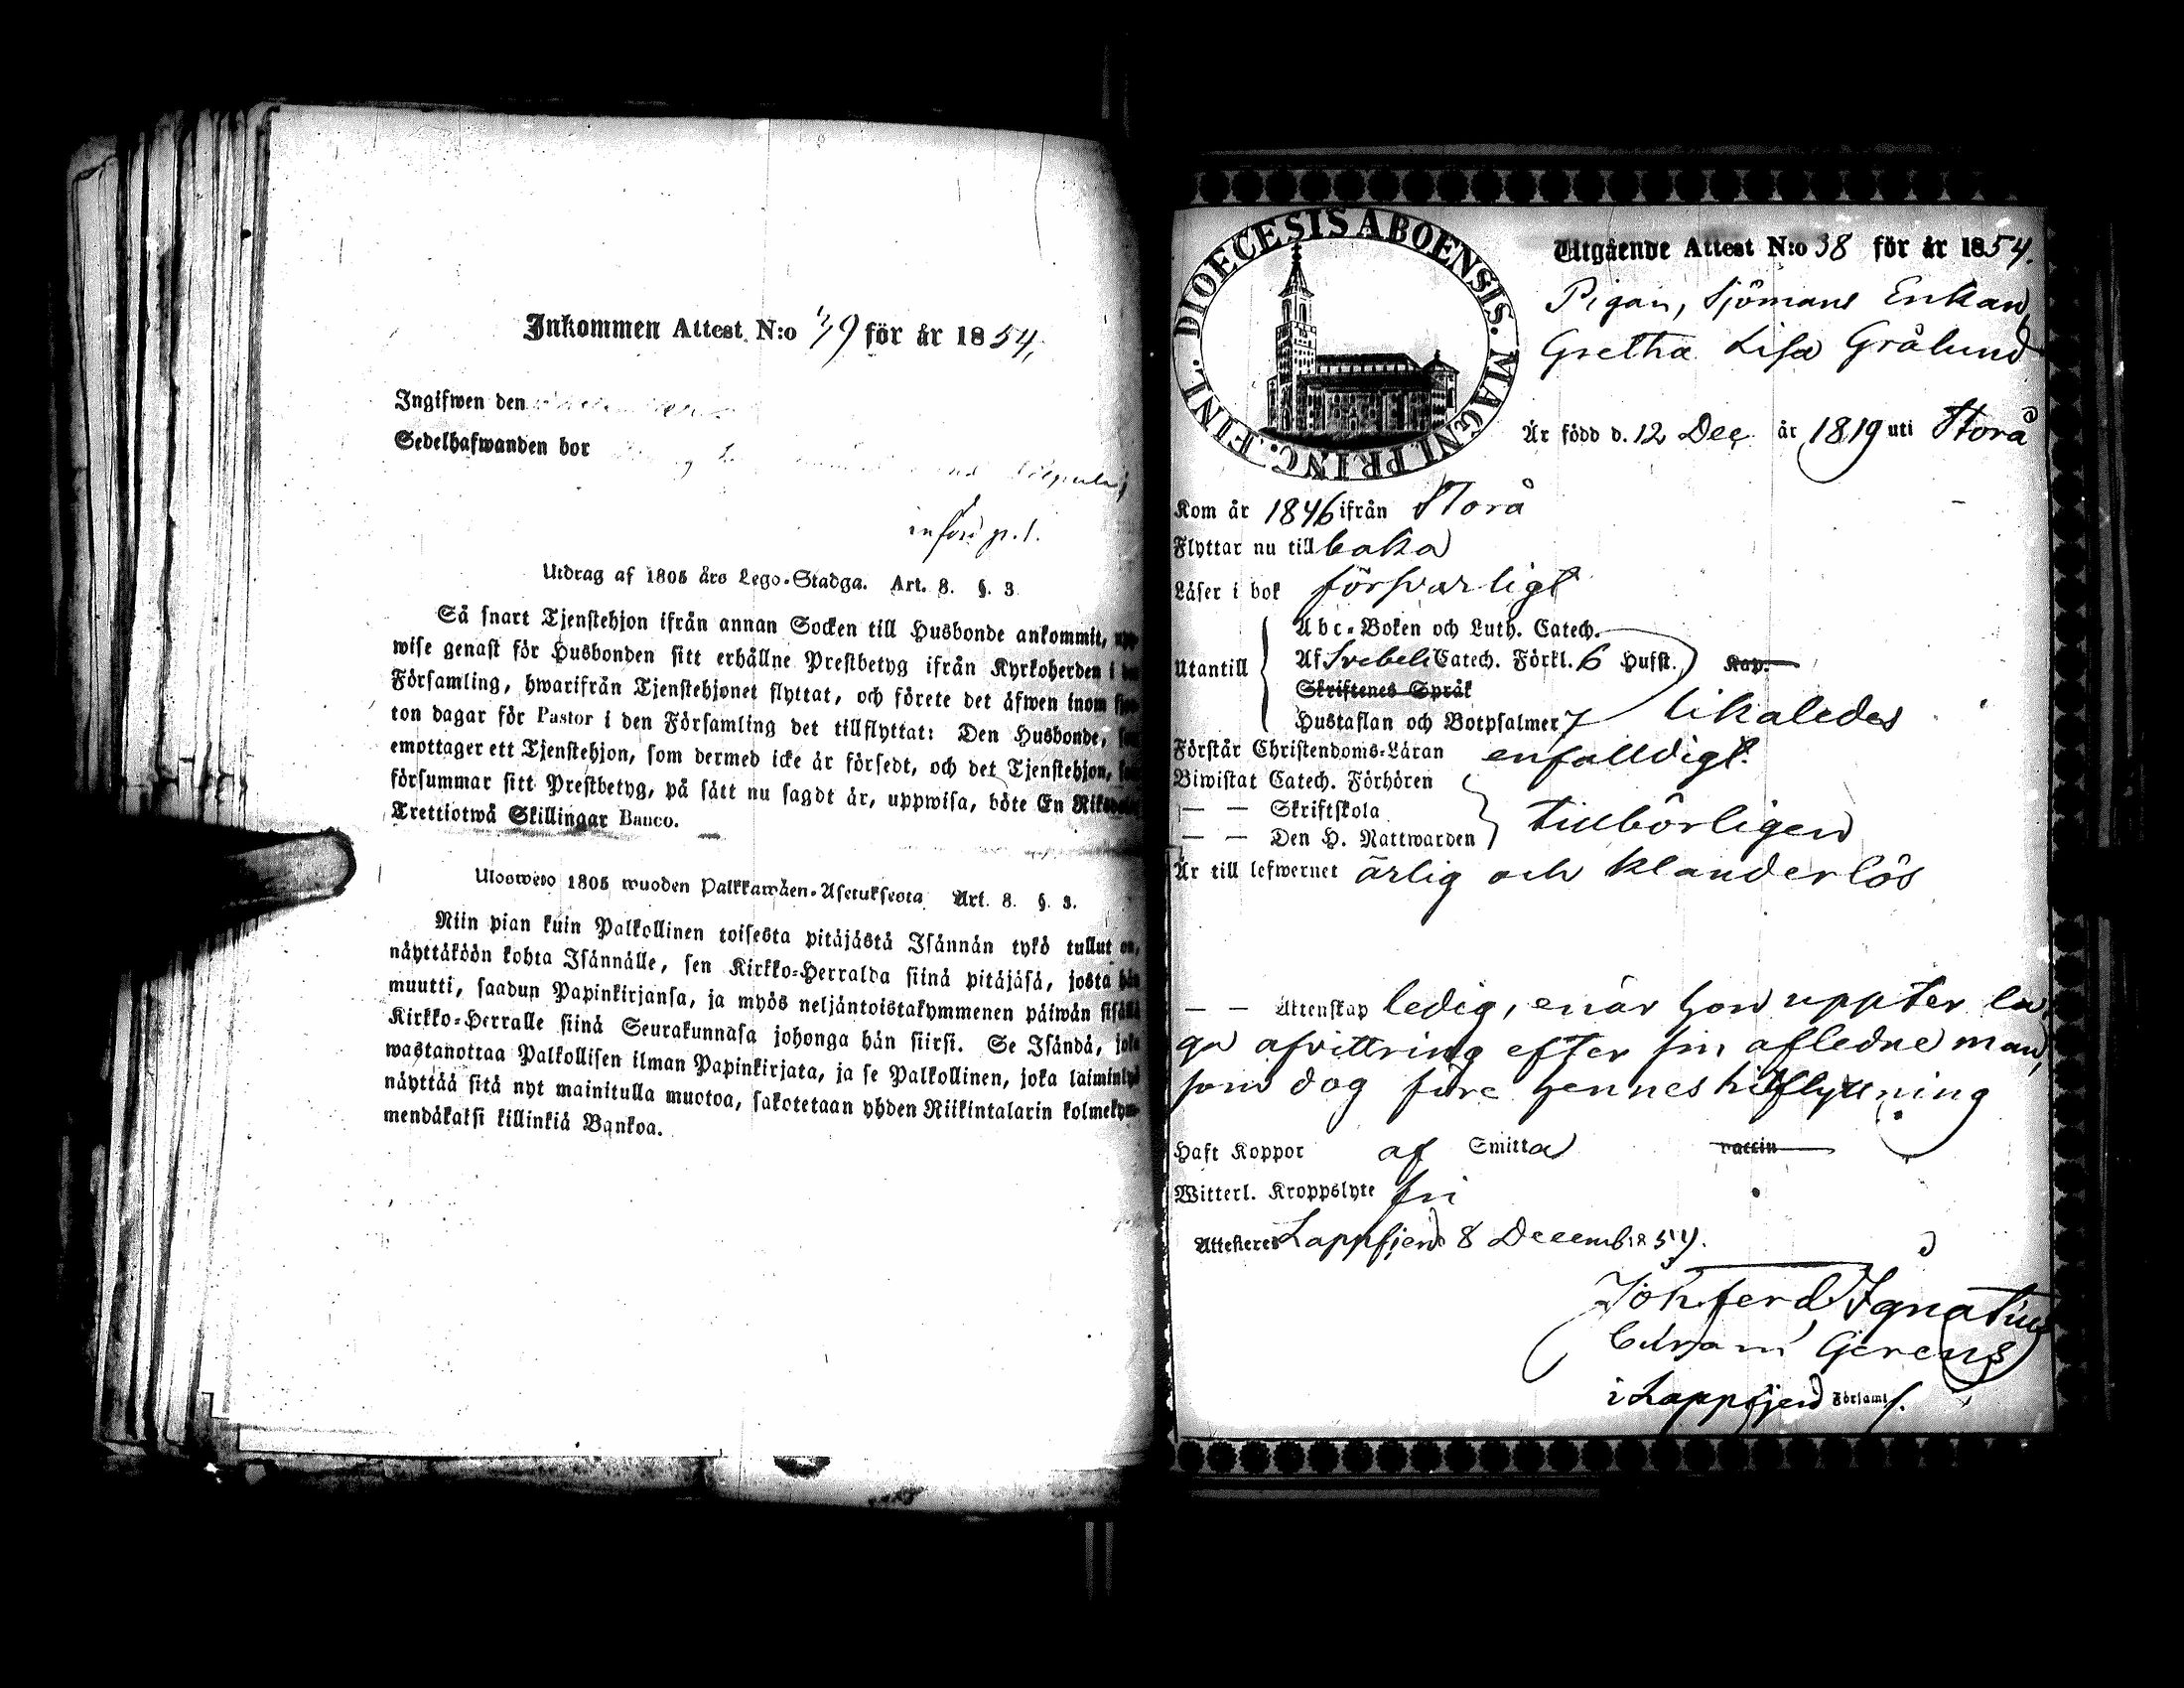 Inkommen Attest N:o 39 för år 1854,
Ingifwen den
Sedelhafwanden bor
införd p. 1.
Utdrag af 1805 års Lego-Stadga. Art. 8. §. 3
Så snart Tjenstehjon ifrån annan Socken till Husbonde ankommit, upp-
wise genast för Husbonden sitt erhållne Prestbetyg ifrån Kyrkoherden i den
Församling, hwarifrån Tjenstehjonet flyttat, och förete det äfwen inom fjor-
ton dagar för Pastor i den Församling det tillflyttat: Den Husbonde, som
emottager ett Tjenstehjon, som dermed icke är försedt, och det Tjenstehjon, som
försummar sitt Prestbetyg, på sätt nu sagdt är, uppwisa, böte En Riksdaler
Trettiotwå Skillingar Banco.
Uloswèto 1805 wuoden Palkkawäen-Asetuksesta Art. 8. §. 3.
Niin pian kuin Palkollinen toisesta pitäjästä Isännän tykö tullut on,
näyttäköön kohta Isännälle, sen Kirkko-Herralda siinä pitäjäsä, josta hän
muutti, saadun Papinkirjansa, ja myös neljäntoistakymmenen päiwän sisällä
Kirkko-Herralle siinä Seurakunnasa johonga hän siirsi. Se Isändä, joka
wastanottaa Palkollisen ilman Papinkirjata, ja se Palkollinen, joka laiminlyö
näyttää sitä nyt mainitulla muotoa, sakotetaan yhden Riikintalarin kolmekym-
mendäkaksi killinkiä Bankoa.
DIOECESIS ABOENSIS. MAGNI. PRINC. FINL.
Utgående Attest N:o 38 för år 1854.
Pigan, Sjömans Enkan
Gretha Lisa Grålund
Är född d. 12 Dec. år 1819 uti Storå
Kom år 1846 ifrån Storå
Flyttar nu till baka
Läser i bok försvarligt
Utantill
Abc-Boken och Luth. Catech.
Af Svebeli Catech. Förkl. 6 Hufst. Kap.
Skriftenes Språk
Hustaflan och Botpsalmer 7 likaledes
Förstår Christendoms-Läran enfalldigt.
Biwistat Catech. Förhören
— — Skriftskola
— — Den H. Nattwarden tillbörligen
Är till lefwernet ärlig och klanderlös
— — Äktenskap ledig, enär hon uppter la-
ga afvittring efter sin aflednе man,
som dog före hennes hitflyttning
Haft Koppor af Smitta vaccin
Witterl. Kroppslyte fri
Attesteres Lappfjerd 8 Decemb. 1854.
Joh. Ferd. Ignatius
Curam Gerens
i Lappfjerd Församl.